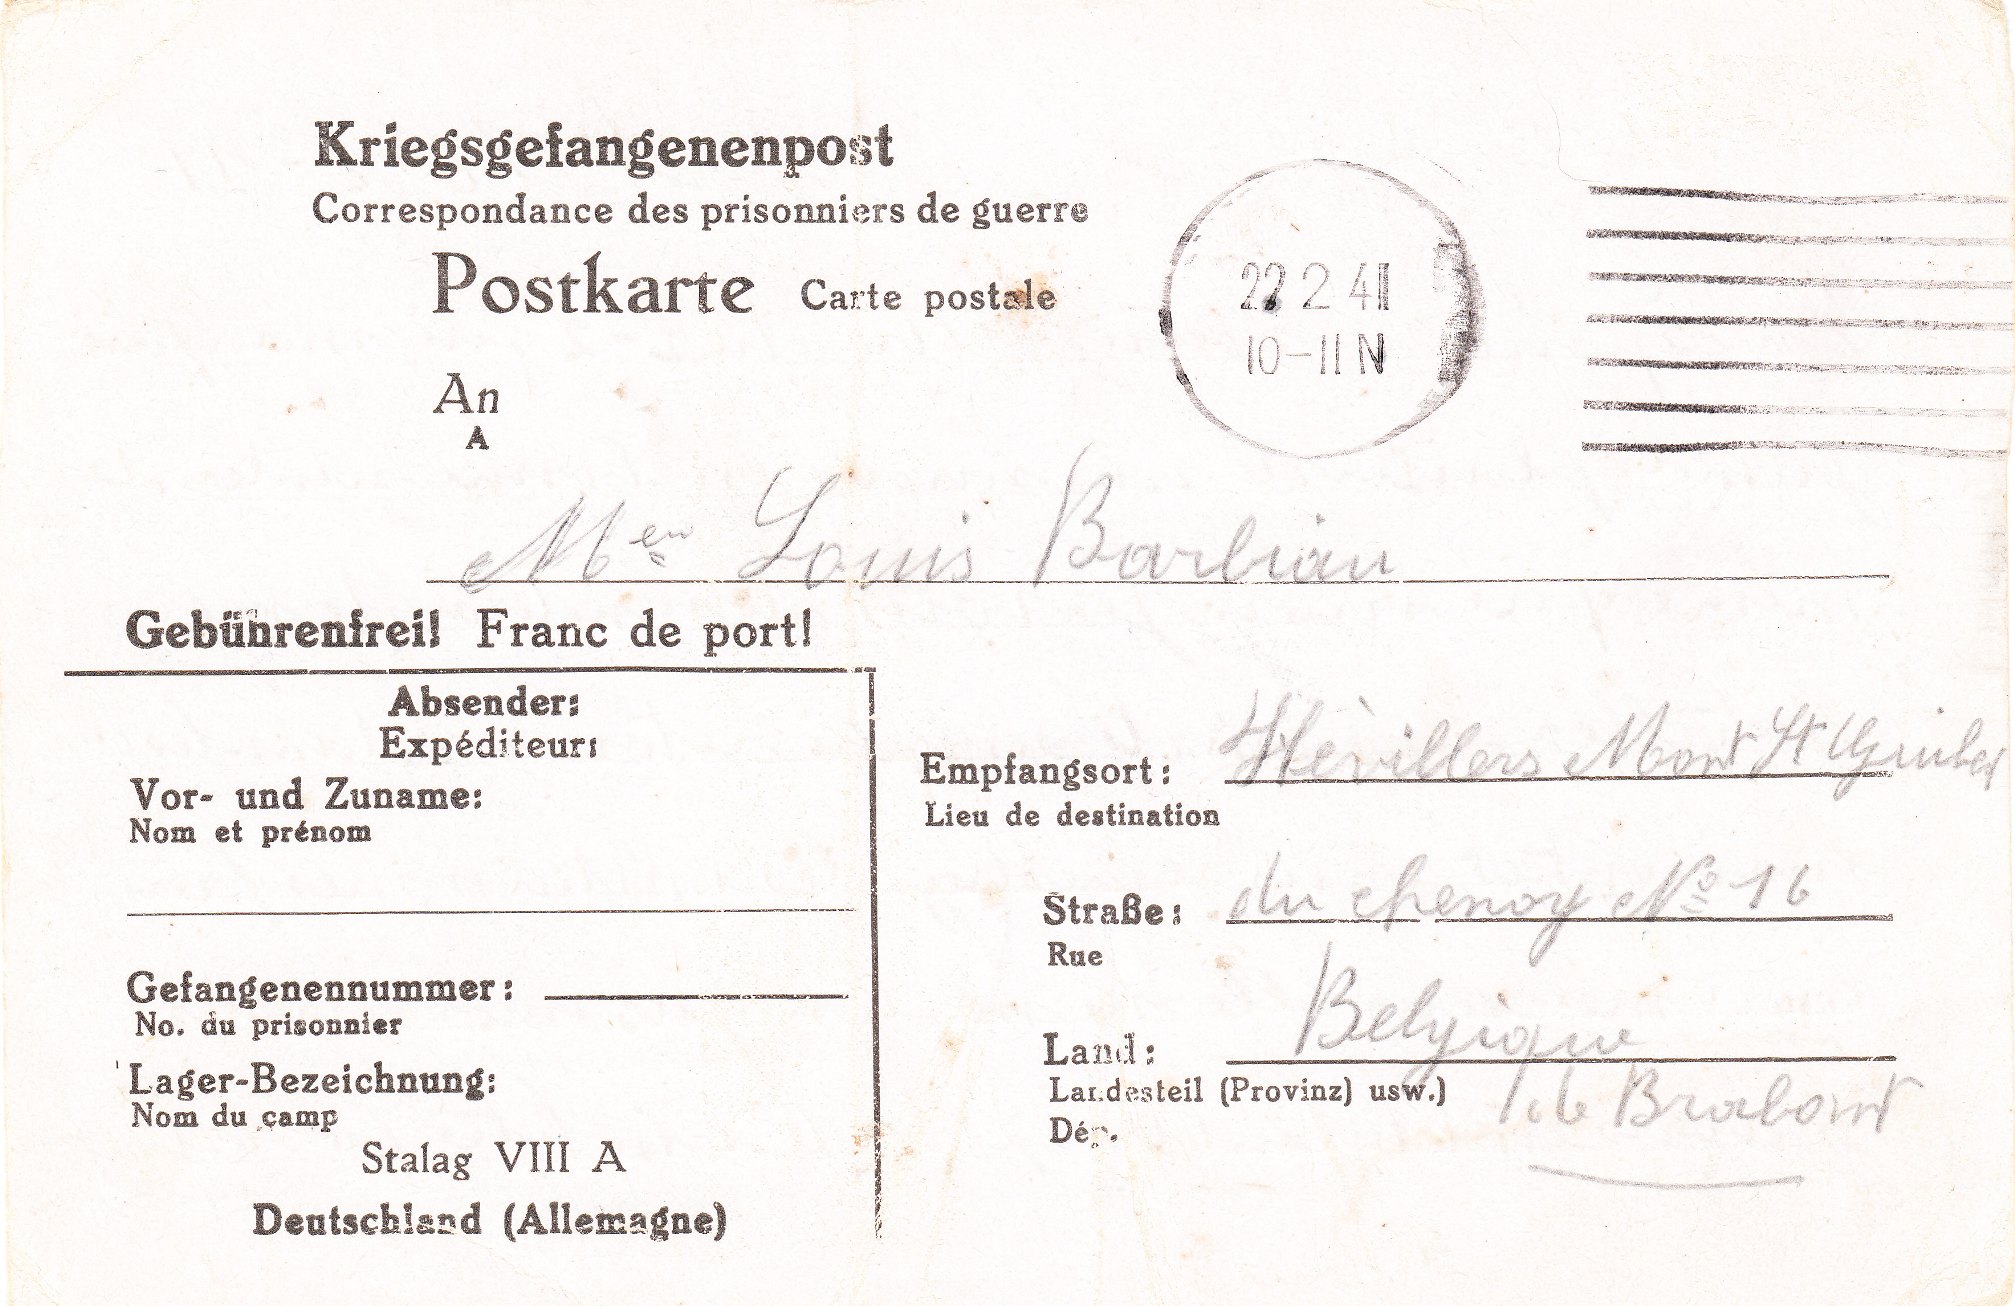 Kriegsgefangenenpost
Correspondance des prisonniers de guerre
Postkarte Carte postale
22 2 41
10-11 N
An
A
Louis Barbiau
Gebührenfrei! Franc de port!
Absender:
Expéditeur:
Vor- und Zuname:
Nom et prénom
Gefangenennummer:
No. du prisonnier
Lager-Bezeichnung:
Nom du camp
Stalag VIII A
Deutschland (Allemagne)
Empfangsort: Hévillers Mont St
Lieu de destination
Straße: du chenoy No 16
Rue
Land: Belgique
Landesteil (Provinz) usw.)
Brabant
Dép.